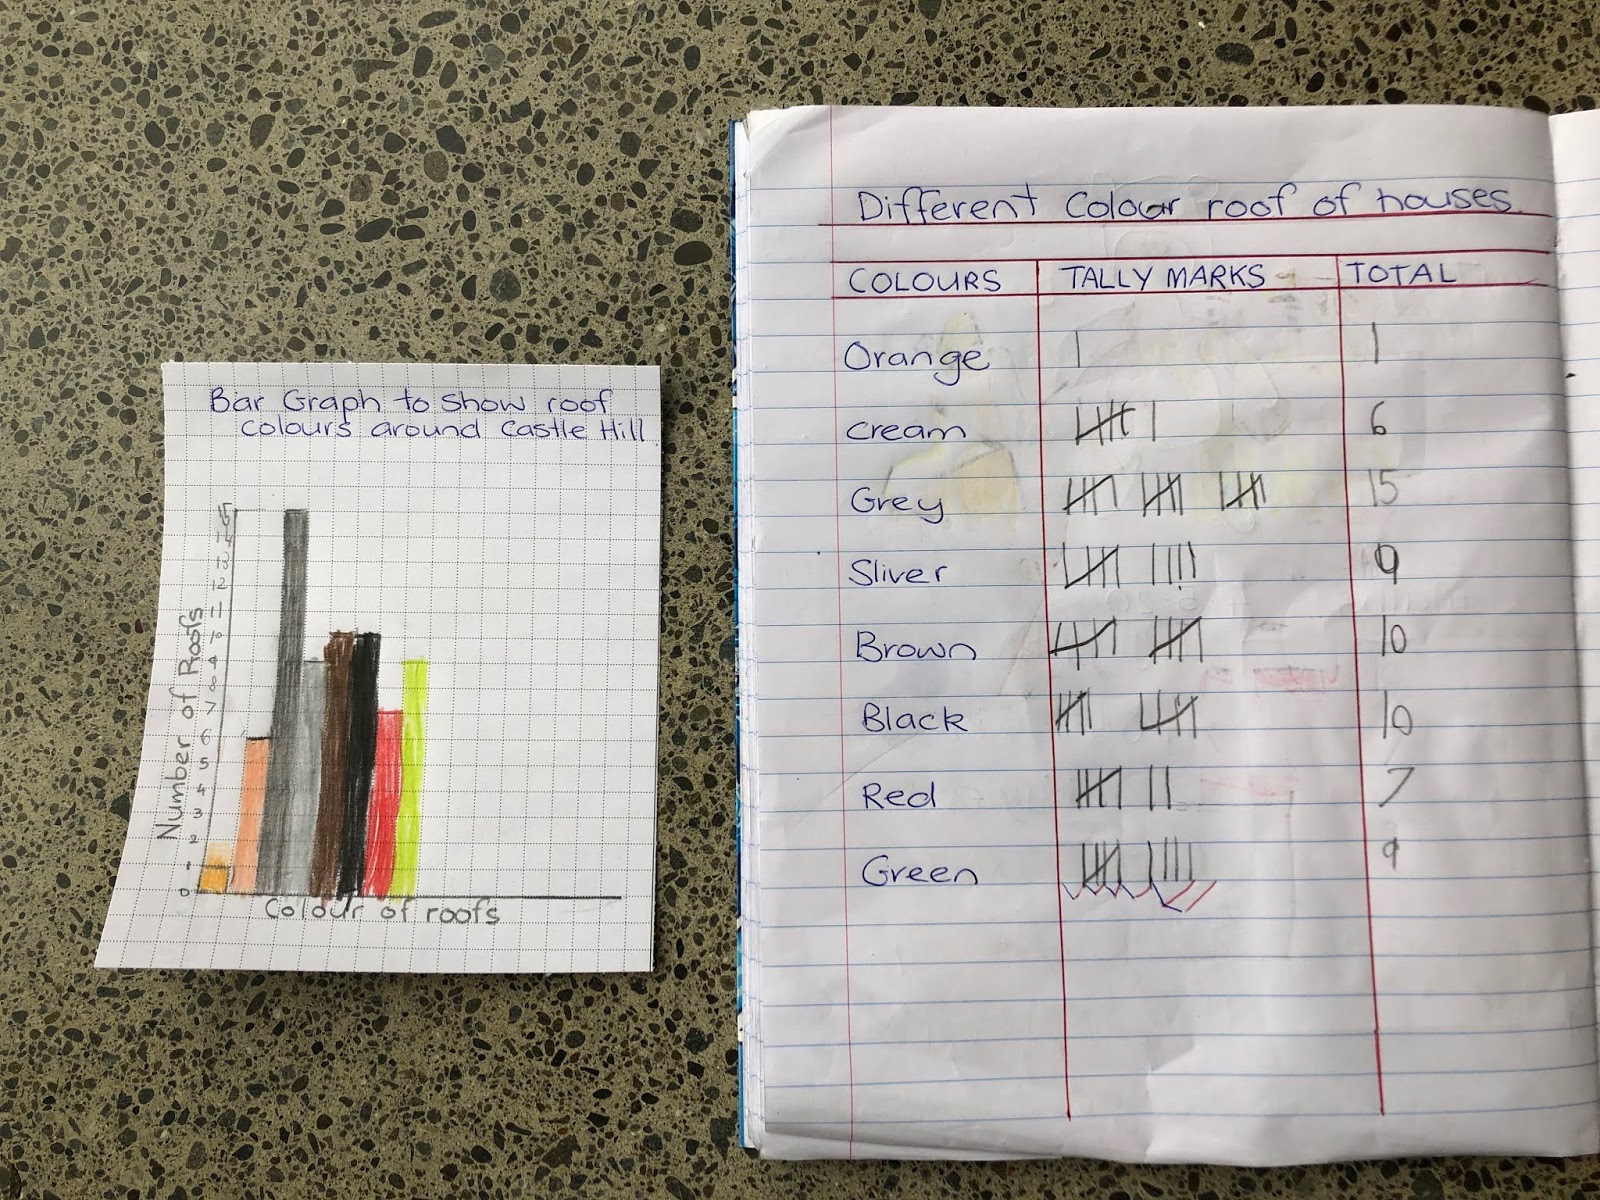 Bar Graph to show roof
colours around Castle Hill
15
12
11
10
9
8
7
6
5
4
3
2
1
0
Number of Roofs
Colour of roofs
Different Colour roof of houses
COLOURS TALLY MARKS TOTAL
Orange 1
cream 6
Grey 15
Sliver 9
Brown 10
Black 10
Red 7
Green 9